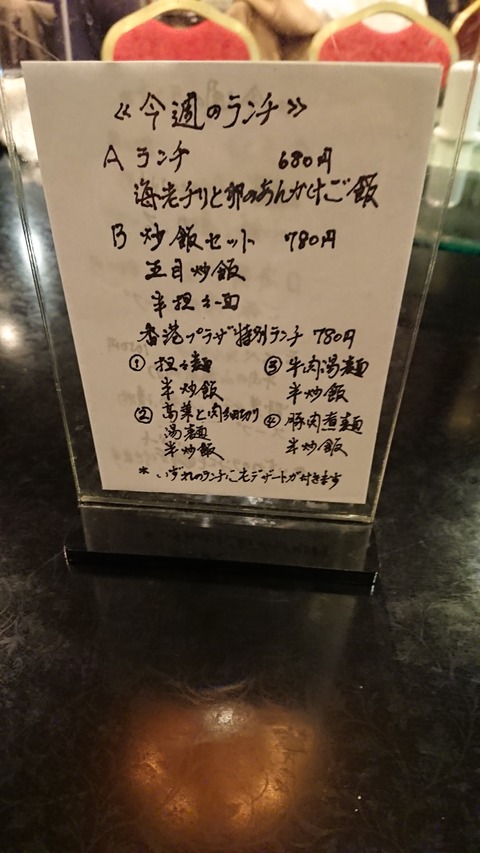 ≪今週のランチ≫
A ランチ 680円
海老チリと卵のあんかけご飯
B 炒飯セット 780円
五目炒飯
半担々麺
香港プラザ特別ランチ 780円
① 担々麺
半炒飯
② 高菜と肉細切り
湯麺
半炒飯
③ 牛肉湯麺
半炒飯
④ 豚肉煮麺
半炒飯
* いずれのランチにもデザートが付きます